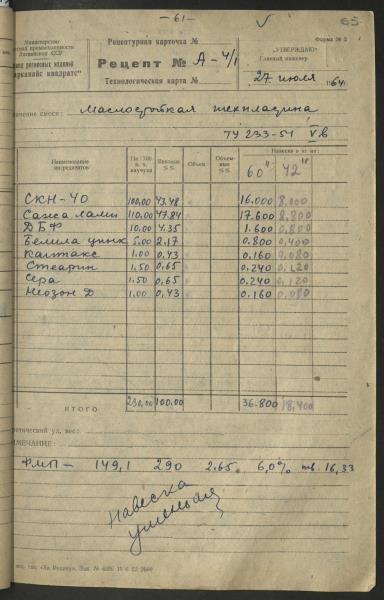 —61—
√
65
Министерство
Рецептурная карточка №
Форма № 2
Латвийской ССР
"УТВЕРЖДАЮ"
Главный инженер
Рецепт № А-4/1
"арканайс квадратс"
Технологическая карта №
27 июля 1964
Маслостойкая техпластина
ТУ 233-54 Vв
Наименование ингредиентов
На 100 в. ч. каучука
Весовые %%
Объем
Объемные %%
Навеска в кг на:
60" 42"
СКН-40 100,00 43.48 16.000 8,000
Сажа ламп. 110,00 47.84 17.600 8,800
ДБФ 10.00 4.35 1.600 0,800
Белила цинк 5.00 2.17 0.800 0,400
Каптакс 1.00 0,43 0.160 0,080
Стеарин 1.50 0,65 0.240 0,120
Сера 1.50 0,65 0.240 0,120
Неозон Д 1.00 0,43 0.160 0,080
ИТОГО 230,00 100.00 36.800 18,400
ул. вес
ФМП — 149,1 290 2.65 6,0% тв. 16,33
Навеска